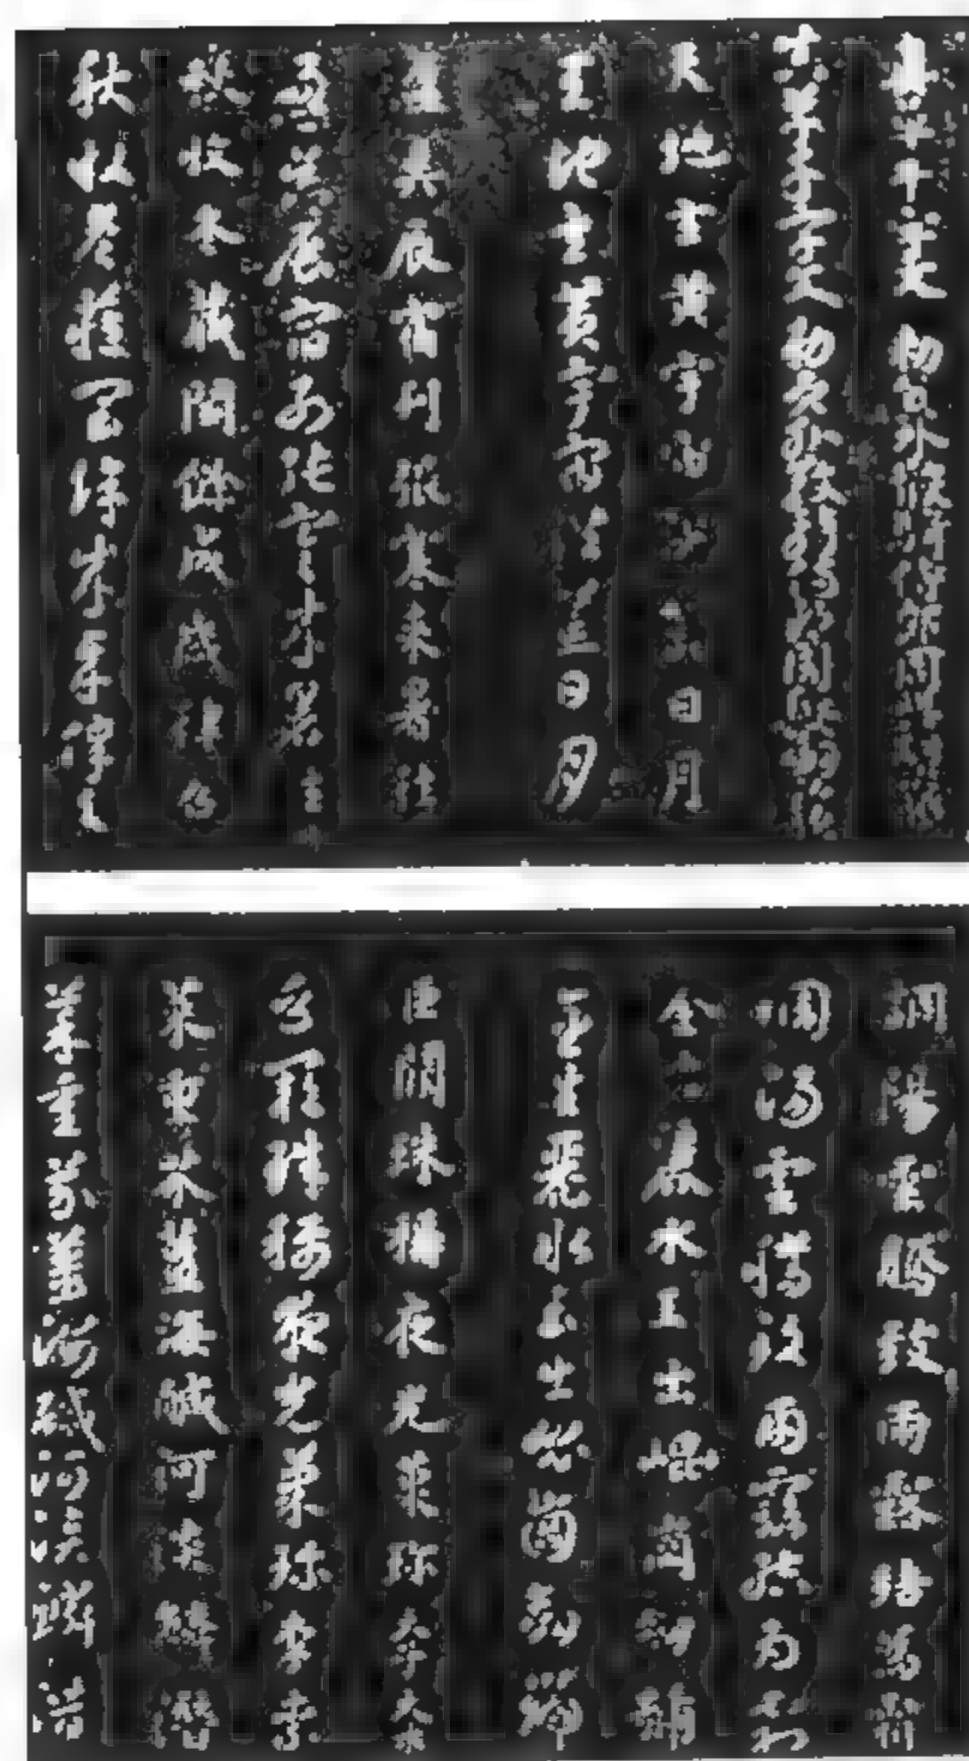 真草千字文 勑員外散騎侍郎周興嗣次韻
真草千字文 勑員外散騎侍郎周興嗣次韻
天地玄黃宇宙洪荒日月
天地玄黃宇宙洪荒日月
盈昃辰宿列張寒來暑往
盈昃辰宿列張寒來暑往
秋收冬藏閏餘成歲律召
秋收冬藏閏餘成歲律召
調陽雲騰致雨露結為霜
調陽雲騰致雨露結為霜
金生麗水玉出崐崗劒號
金生麗水玉出崐崗劒號
巨闕珠稱夜光菓珍李柰
巨闕珠稱夜光菓珍李柰
菜重芥薑海鹹河淡鱗潛
菜重芥薑海鹹河淡鱗潛